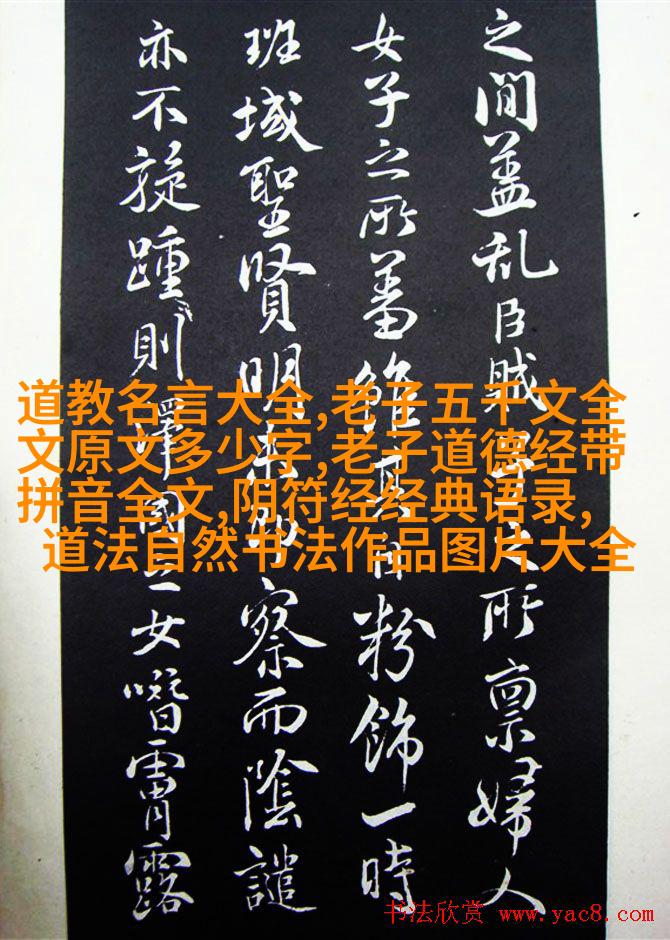 之間盖乱臣賊之所禀婦人
女子之所蓄雖粉飾一時
班域聖賢明察而陰譴
亦不旋踵則國之女噆霄露
道教名言大全,老子五千文全
文原文多少字,老子道德经带
拼音全文,阴符经经典语录,
道法自然书法作品图片大全
书法欣赏 www.yac8.com